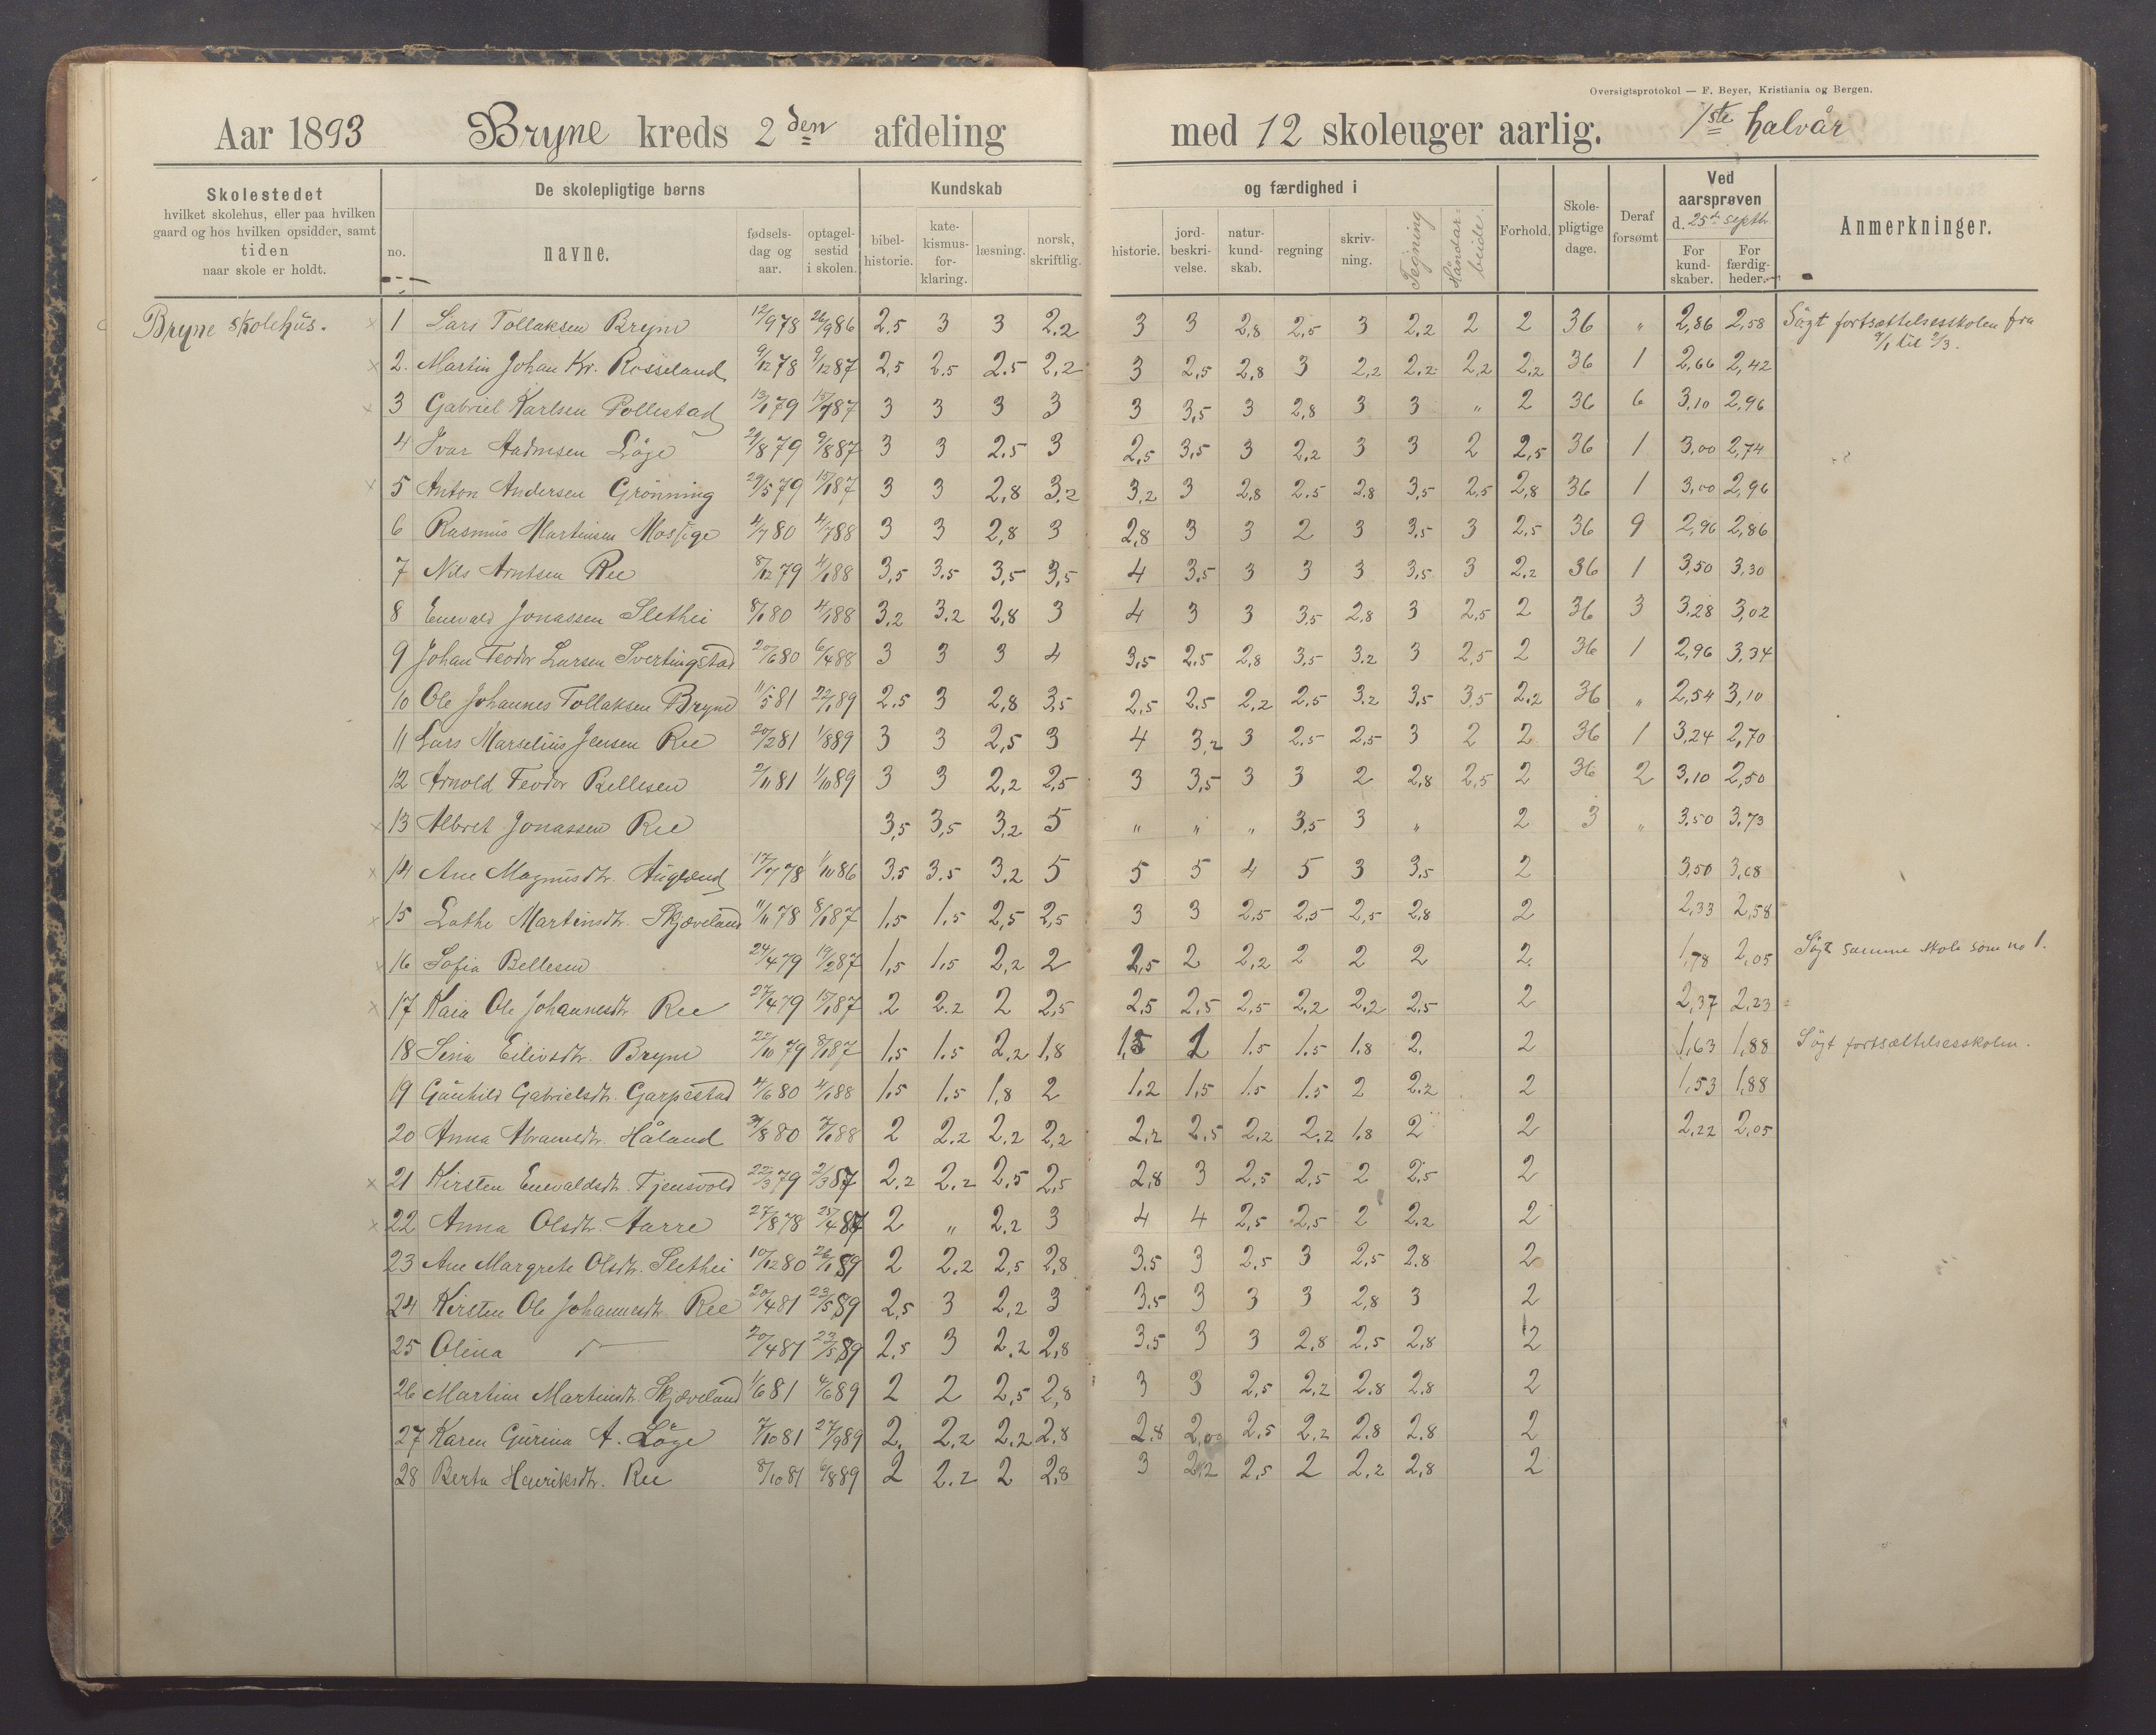 Oversigtsprotokol — F. Beyer, Kristiania og Bergen.
Aar 1893 Bryne kreds 2den afdeling med 12 skoleuger aarlig. 1ste halvår
Skolestedet hvilket skolehus, eller paa hvilken gaard og hos hvilken opsidder, samt tiden naar skole er holdt.
De skolepligtige børns
no. navne. fødselsdag og aar. optagelsestid i skolen.
Kundskab og færdighed i
bibelhistorie. katekismusforklaring. læsning. norsk, skriftlig. historie. jordbeskrivelse. naturkundskab. regning skrivning. Tegning Håndarbeide.
Forhold. Skolepligtige dage. Deraf forsømt
Ved aarsprøven d. 25de septb. For kundskaber. For færdigheder.
Anmerkninger.
Bryne skolehus.
1 Lars Tollaksen Bryne 12/9 78 26/9 86 2,5 3 3 2,2 3 3 2,8 2,5 3 2,2 2 2 36 " 2,86 2,58 Søgt fortsættelsesskolen fra 9/1 til 2/3.
2. Martin Johan Kr. Rosseland 9/12 78 9/12 87 2,5 2,5 2,5 2,2 3 2,5 2,8 3 2,2 2,2 2,2 2,2 36 1 2,66 2,42
3 Gabriel Karlsen Pollestad 13/1 79 15/7 87 3 3 3 3 3 3,5 3 2,8 3 3 " 2 36 6 3,10 2,96
4 Ivar Aadnesen Løge 29/8 79 9/8 87 3 3 2,5 3 2,5 3,5 3 2,2 3 3 2 2,5 36 1 3,00 2,74
5 Anton Andersen Grønning 29/5 79 15/1 87 3 3 2,8 3,2 3,2 3 2,8 2,5 2,8 3,5 2,5 2,8 36 1 3,00 2,96
6 Rasmus Martinsen Mossige 4/7 80 4/7 88 3 3 2,8 3 2,8 3 3 2 3 3,5 3 2,5 36 9 2,96 2,86
7 Nils Arntsen Ree 8/12 79 4/1 88 3,5 3,5 3,5 3,5 4 3,5 3 3 3 3,5 3 2,2 36 1 3,50 3,30
8 Enevald Jonassen Slethei 8/1 80 4/1 88 3,2 3,2 2,8 3 4 3 3 3,5 2,8 3 2,5 2 36 3 3,28 3,02
9 Johan Teodor Larsen Svertingstad 20/6 80 6/4 88 3 3 3 4 3,5 2,5 2,8 3,5 3,2 3 2,5 2 36 1 2,96 3,34
10 Ole Johannes Tollaksen Bryne 11/5 81 22/1 89 2,5 3 2,8 3,5 2,5 2,5 2,2 2,5 3,2 3,5 3,5 2,2 36 " 2,54 3,10
11 Lars Marselius Jensen Ree 20/2 81 1/8 89 3 3 2,5 3 4 3,2 3 2,5 2,5 3 2 2 36 1 3,24 2,70
12 Arnold Teodor Bellesen 2/11 81 1/10 89 3 3 2,2 2,5 3 3,5 3 3 2 2,8 2,5 2 36 2 3,10 2,50
13 Albret Jonassen Ree 3,5 3,5 3,2 5 " " " 3,5 3 " 2 3 " 3,50 3,73
14 Ane Magnusdtr. Auglend 17/7 78 1/10 86 3,5 3,5 3,2 5 5 5 4 5 3 3,5 2 3,50 3,68
15 Lathe Martinsdtr. Skjæveland 11/11 78 8/1 87 1,5 1,5 2,5 2,5 3 3 2,5 2,5 2,5 2,8 2 2,33 2,58
16 Sofia Bellesen 24/4 79 19/2 87 1,5 1,5 2,2 2 2,5 2 2,2 2 2 2 2 1,78 2,05 Søgt samme skole som no 1.
17 Kaia Ole Johannesdtr. Ree 27/4 79 15/1 87 2 2,2 2 2,5 2,5 2,5 2,5 2,2 2,2 2,5 2 2,37 2,23
18 Sina Eilivsdtr. Bryne 22/10 79 8/1 87 1,5 1,5 2,2 1,8 1,5 2 1,5 1,5 1,8 2. 2 1,63 1,88 Søgt fortsættelsesskolen.
19 Gunhild Gabrielsdtr. Garpestad 4/6 80 4/1 88 1,5 1,5 1,8 2 1,2 1,5 1,5 1,5 2 2,2 2 1,53 1,88
20 Anna Abramsdtr. Håland 31/8 80 7/1 88 2 2,2 2,2 2,2 2,2 2,5 2,2 2,2 1,8 2 2 2,22 2,05
21 Kirsten Enevaldsdtr. Tjensvold 22/3 79 2/3 87 2,2 2,2 2,5 2,5 2,8 3 2,5 2,5 2 2,5 2
22 Anna Olsdtr. Aarre 27/8 78 25/4 87 2 " 2,2 3 4 4 2,5 2,5 2 2,2 2
23 Ane Margrete Olsdtr. Slethei 10/12 80 26/1 89 2 2,2 2,5 2,8 3,5 3 2,5 3 2,5 2,8 2
24 Kirsten Ole Johannesdtr. Ree 20/4 81 23/5 89 2,5 3 2,2 3 3,5 3 3 3 2,8 3 2
25 Olina 20/4 81 23/5 89 2,5 3 2,2 2,8 3,5 3 3 2,8 2,5 2,8 2
26 Martine Martinsdtr. Skjæveland 1/6 81 4/6 89 2 2 2,5 2,8 3 3 2,5 2,2 2,8 2,8 2
27 Karen Gurina A. Løge 7/10 81 27/9 89 2. 2,2 2,2 2,8 2,8 2,00 2,5 2,2 2,8 2,8 2
28 Berta Henriksdtr. Ree 8/10 81 6/8 89 2 2,2 2 2,8 3 2,2 2,5 2 2,2 2,8 2